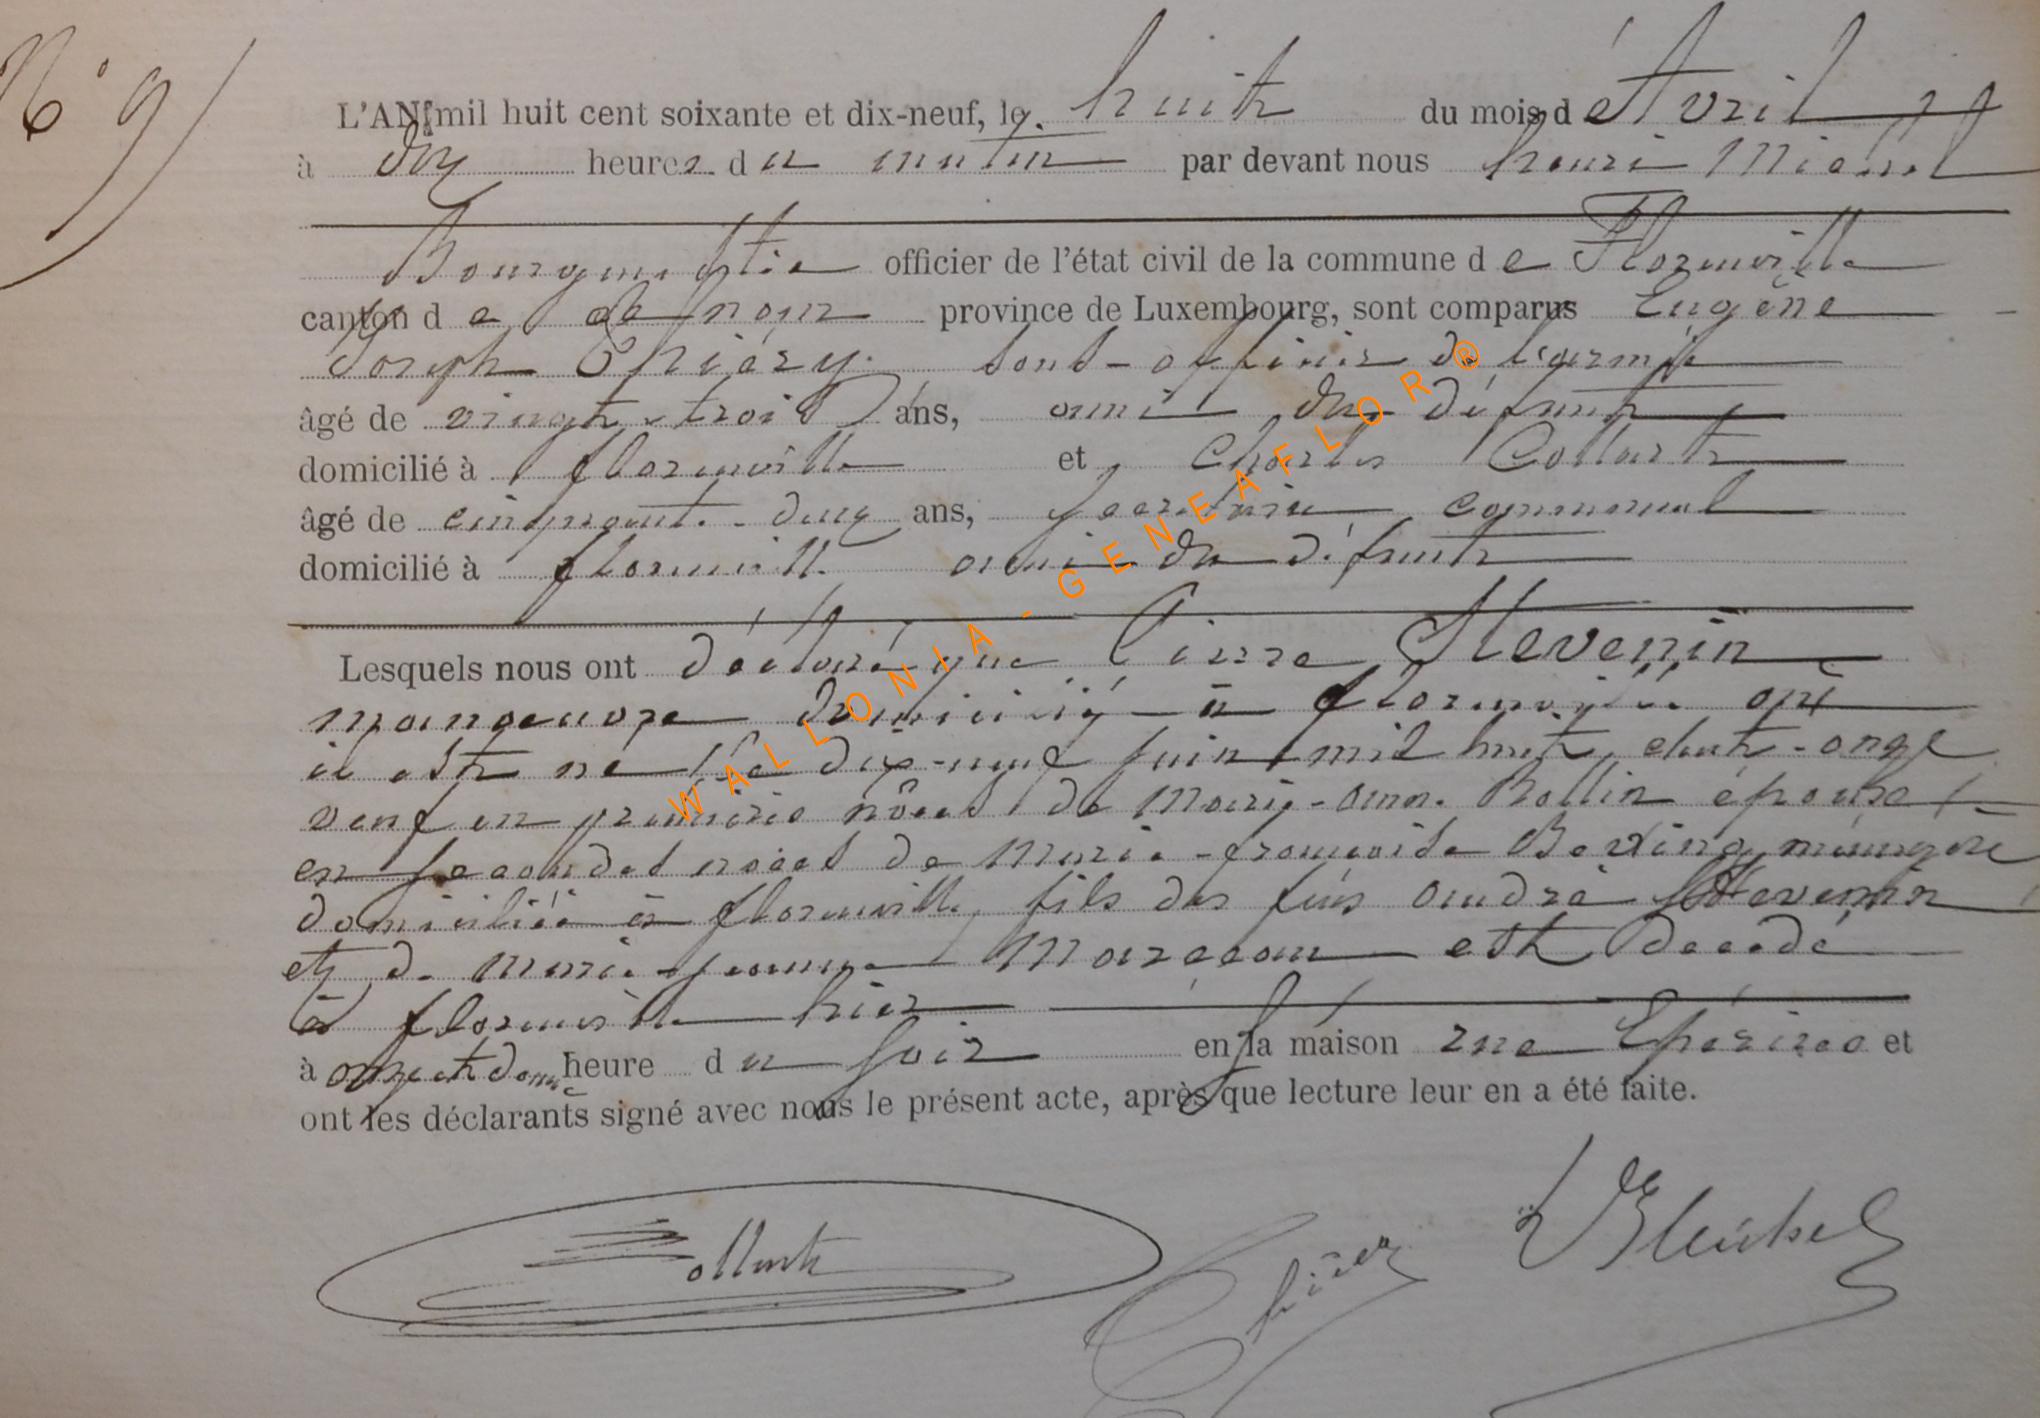 N° 9
L'AN mil huit cent soixante et dix-neuf, le huit du mois d'Avril
à dix heures du matin par devant nous henri Michel
Bourgmestre officier de l'état civil de la commune de Florenville
canton de province de Luxembourg, sont comparus Eugène
Joseph Thiéry sous-officier de l'armée
âgé de vingt-trois ans, ami du défunt
domicilié à florenville et Charles Collart
âgé de cinquante-deux ans, secrétaire communal
domicilié à florenville ami du défunt
Lesquels nous ont déclaré que Pierre Stevenin
manoeuvre domicilié à florenville où
il est né le dix-neuf juin mil huit cent-onze
veuf en première nôces de Marie-Anne Rollin épouse
en secondes noces de Marie-francoise ménagère
domiciliée à florenville, fils des feus André Stevenin
et de Marie-jeanne est décédé
à florenville hier
à onze et demie heure du soir en sa maison rue et
ont les déclarants signé avec nous le présent acte, après que lecture leur en a été faite.
Collart Thiéry HMichel
WALLONIA - GENEAFLOR®